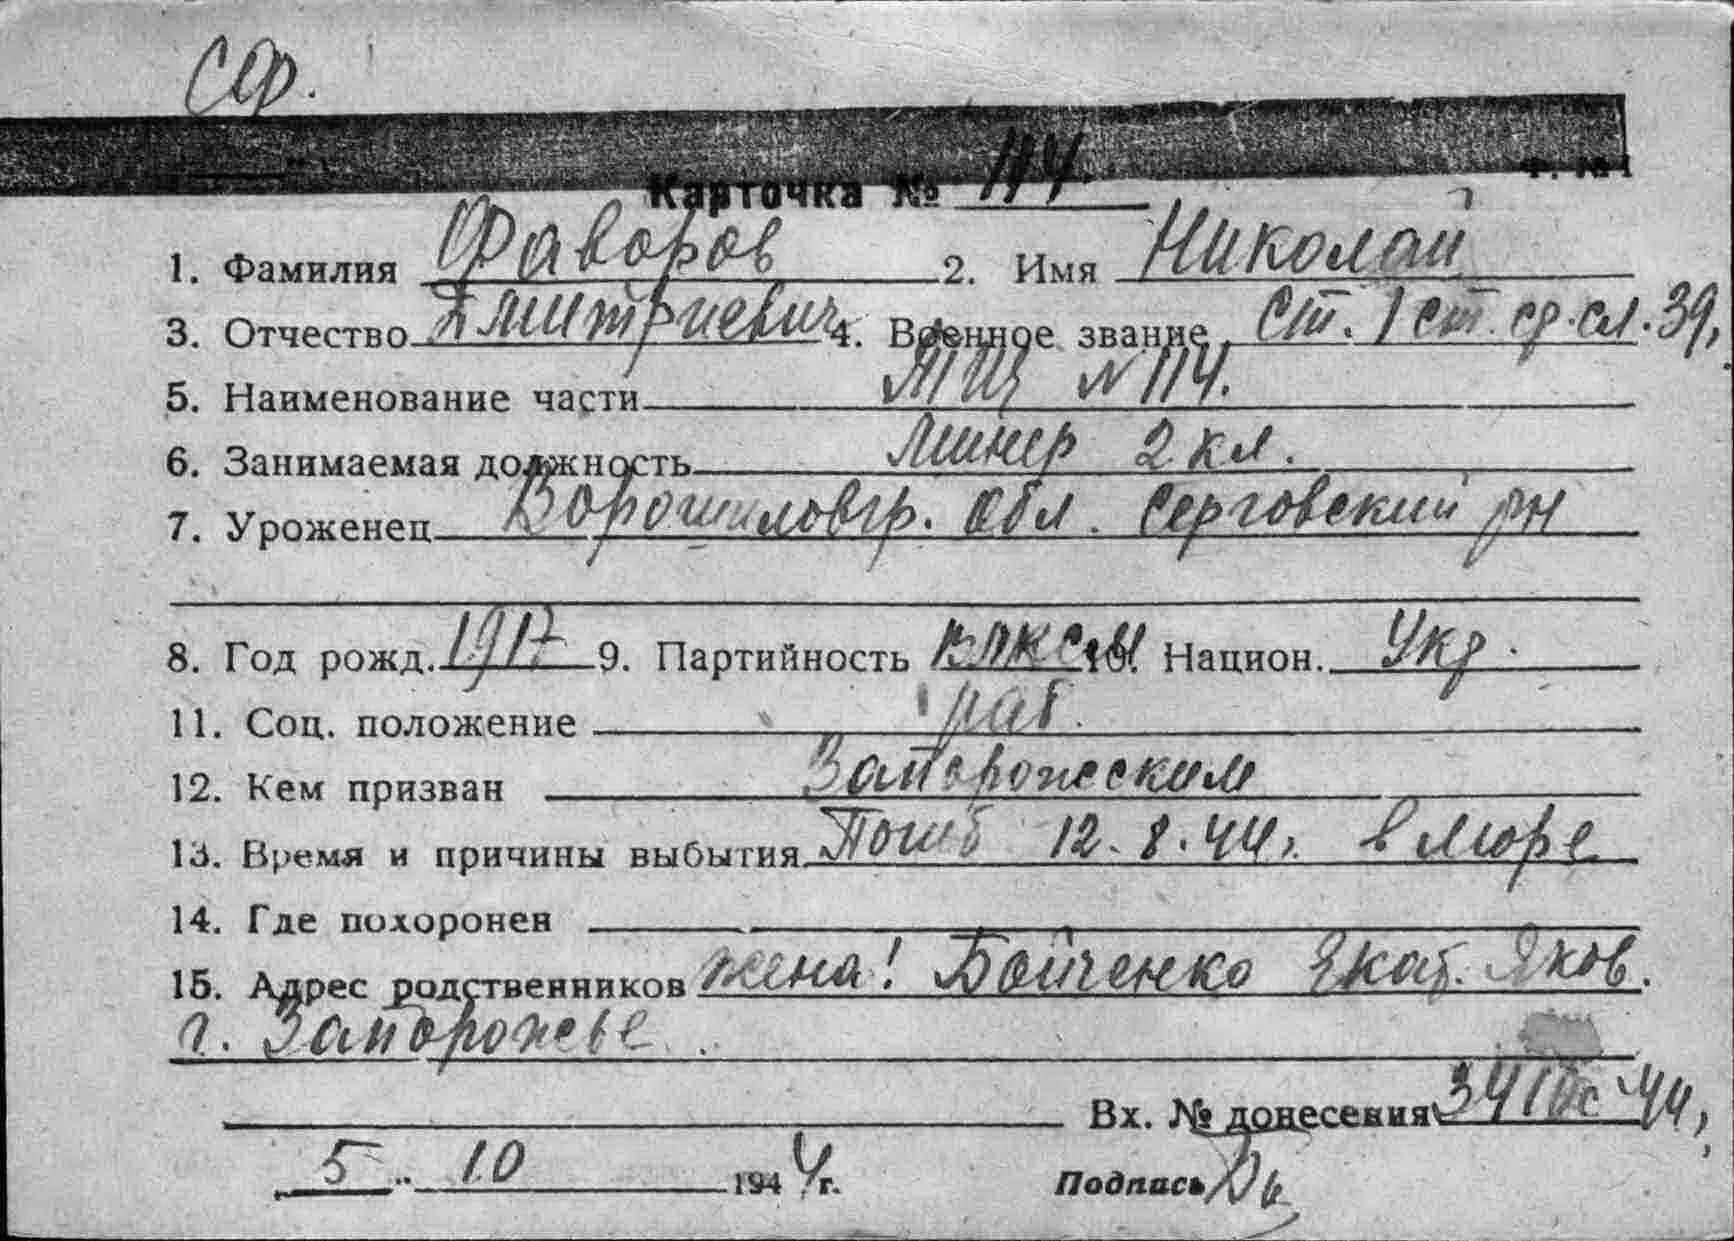 СФ.
Карточка № 114.
1. Фамилия Фаворов 2. Имя Николай
3. Отчество Дмитриевич 4. Военное звание ст. 1 ст. ср. сл. 39,
5. Наименование части ТЩ №114.
6. Занимаемая должность Минер 2 кл.
7. Уроженец Ворошиловгр. обл. Серговский рн
8. Год рожд. 1917 9. Партийность ВЛКСМ 10. Национ. Укр.
11. Соц. положение раб.
12. Кем призван Запорожским
13. Время и причины выбытия Погиб 12.8.44г. в море
14. Где похоронен
15. Адрес родственников жена! Бойченко Екат. Яков.
г. Запорожье
Вх. № донесения 341 44,
5 " 10 1944 г. Подпись